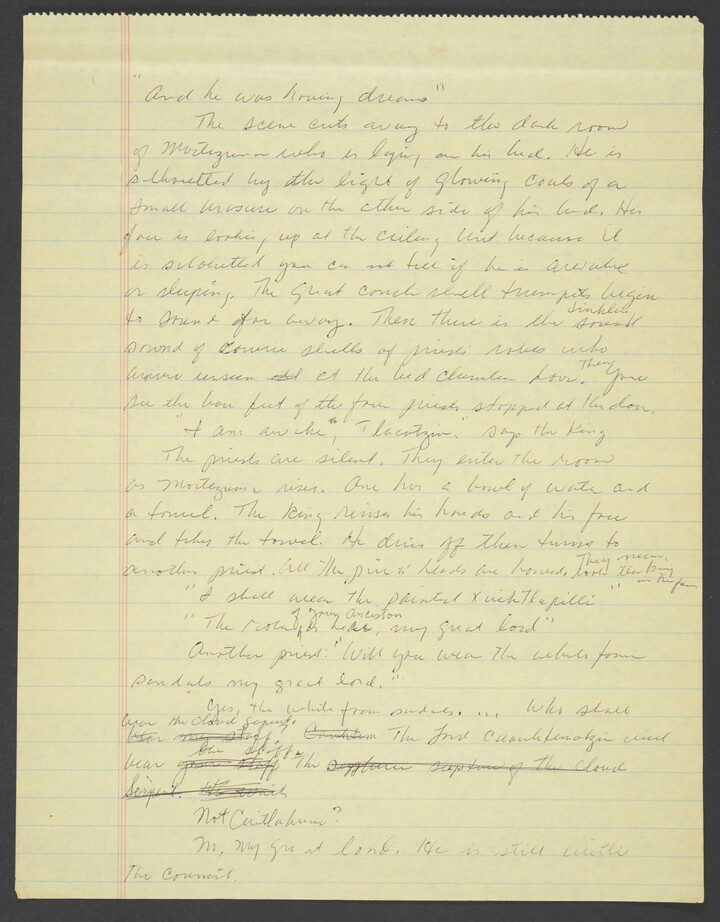 "And he was having dreams"
The scene cuts away to the dark room
of Moctezuma who is lying on his bed. He is
silhouetted by the light of glowing coals of a
small brasure on the other side of his bed. His
face is looking up at the ceiling but because it
is silouetted you can not tell if he is awake
or sleeping. The great conch shell trumpets begin
to sound far away. Then there is the tinklein
sound of cowrie shells of priests robes who
are unseen at the bed chamber door. Then you
see the bare feet of the four priests stopped at the door.
"I am awake", Tlacotzin." says the King
The priests are silent. They enter the room
as Moctezuma rises. One has a bowl of water and
a towel. The King rinses his hands and his face
and takes the towel. He dries off then turns to
another priest. All the priests heads are bowed. They never look the King in
"I shall wear the painted Xicihtlapilli"
"The of your Ancestors, my great lord"
Another priest: "Will you wear the white fawn
sandals my great lord."
"Yes, the white fawn sandals. ... Who shall
bear the cloud serpent?
bear my staff? The Lord Cuauhtematzin will
bear the staff. The of the cloud
Serpent.
Not Cuitlahua?
No, my great lord. He is still with
the Council.